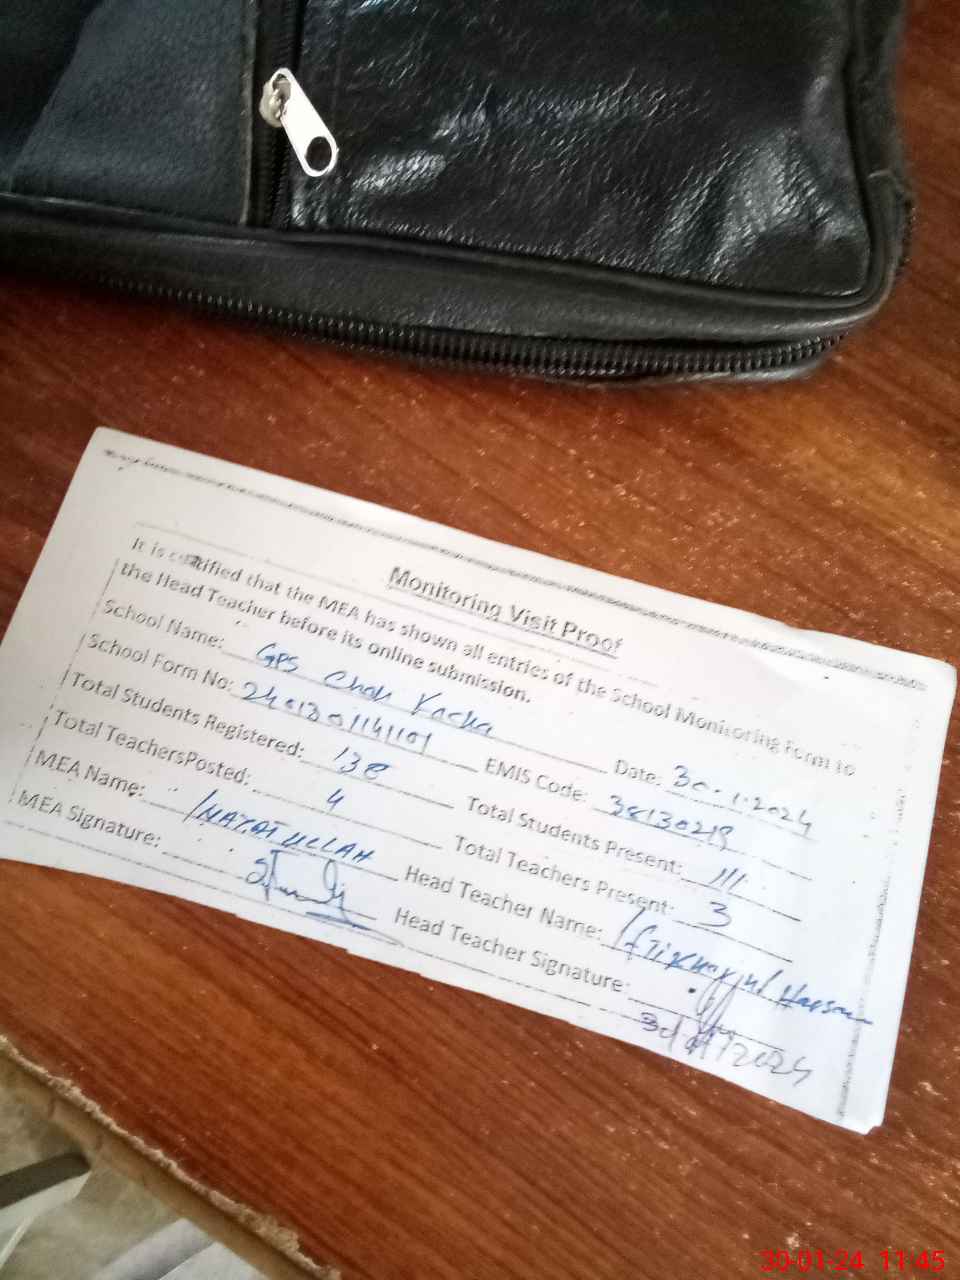 Monitoring Visit Proof
It is certified that the MEA has shown all entries of the School Monitoring Form to
the Head Teacher before its online submission.
School Name: GPS Chak Kacha Date: 30.1.2024
School Form No: 2401301141101 EMIS Code: 38130219
Total Students Registered: 138 Total Students Present: 111
Total TeachersPosted: 4 Total Teachers Present: 3
MEA Name: INAYAT ULLAH Head Teacher Name: Hassan
MEA Signature: Head Teacher Signature:
30-01-24 11:45